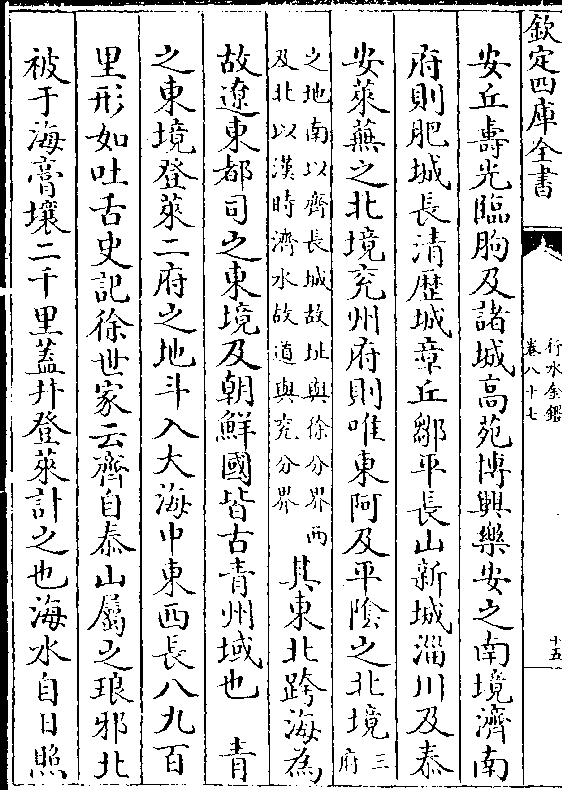 欽定四庫全書
行水金鑑
卷八十七
十五
安丘壽光臨朐及諸城高苑博興樂安之南境濟南
府則肥城長清歷城章丘鄒平長山新城淄川及泰
安萊蕪之北境兖州府則唯東阿及平陰之北境三府
之地南以齊長城故址與徐分界西
及北以漢時濟水故道與兖分界
其東北跨海為
故遼東都司之東境及朝鮮國皆古青州域也　青
之東境登萊二府之地斗入大海中東西長八九百
里形如吐舌史記徐世家云齊自泰山屬之琅邪北
被于海膏壤二千里蓋幷登萊計之也海水自日照